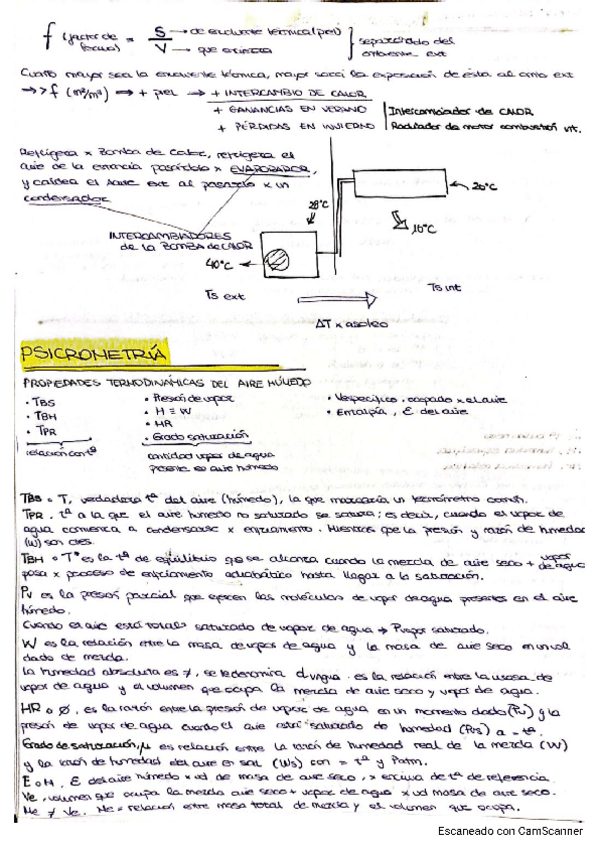 f (factor de forma) = S → de envolvente térmica (piel) / V → que encierra } separándolo del ambiente ext
Cuanto mayor sea la envolvente térmica, mayor será la exposición de ésta al amb ext
→>> f (m²/m³) ⇒ + piel → + INTERCAMBIO DE CALOR
+ GANANCIAS EN VERANO | Intercambiador de CALOR
+ PÉRDIDAS EN INVIERNO | Radiador de motor combustión int.
Refrigera x Bomba de Calor, refrigera el
aire de la estancia pasándolo x EVAPORADOR,
y caldea el aire ext al pasarlo x un
condensador
20°C
28°C
16°C
INTERCAMBIADORES
de la BOMBA de CALOR
40°C
Ts ext
Ts int
ΔT x asoleo
PSICROMETRÍA
PROPIEDADES TERMODINÁMICAS DEL AIRE HÚMEDO
• TBS • Presión de vapor • V específico. ocupado x el aire
• TBH • H ≡ W • Entalpía, E del aire
• TPR • HR
• Grado saturación
relación con tª
cantidad vapor de agua
presente en aire húmedo
TBS = T, verdadera tª del aire (húmedo), la que marcaría un termómetro común.
TPR. Tª a la que el aire húmedo no saturado se satura; es decir, cuando el vapor de
agua comienza a condensarse x enfriamiento. Mientras que la presión y razón de humedad
(W) son ctes.
TBH o T* es la tª de equilibrio que se alcanza cuando la mezcla de aire seco + vapor de agua
pasa x proceso de enfriamiento adiabático hasta llegar a la saturación.
Pv es la presión parcial que ejercen las moléculas de vapor de agua presentes en el aire
húmedo.
Cuando el aire está total² saturado de vapor de agua → Pvapor saturado.
W es la relación entre la masa de vapor de agua y la masa de aire seco en un vol
dado de mezcla.
La humedad absoluta es ≠, se le denomina d v agua. es la relación entre la masa de
vapor de agua y el volumen que ocupa la mezcla de aire seco y vapor de agua.
HR o Ø, es la razón entre la presión de vapor de agua en un momento dado (Pv) y la
presión de vapor de agua cuando el aire está saturado de humedad (Pvs) a = tª.
Grado de saturación, μ es relación entre la razón de humedad real de la mezcla (W)
y la razón de humedad del aire en sat (Ws) con = tª y Patm.
E o H, E del aire húmedo x ud de masa de aire seco, > encima de tª de referencia.
Ve, volumen que ocupa la mezcla aire seco + vapor de agua x ud masa de aire seco.
Me ≠ Ve. Me = relación entre masa total de mezcla y el volumen que ocupa.
Escaneado con CamScanner